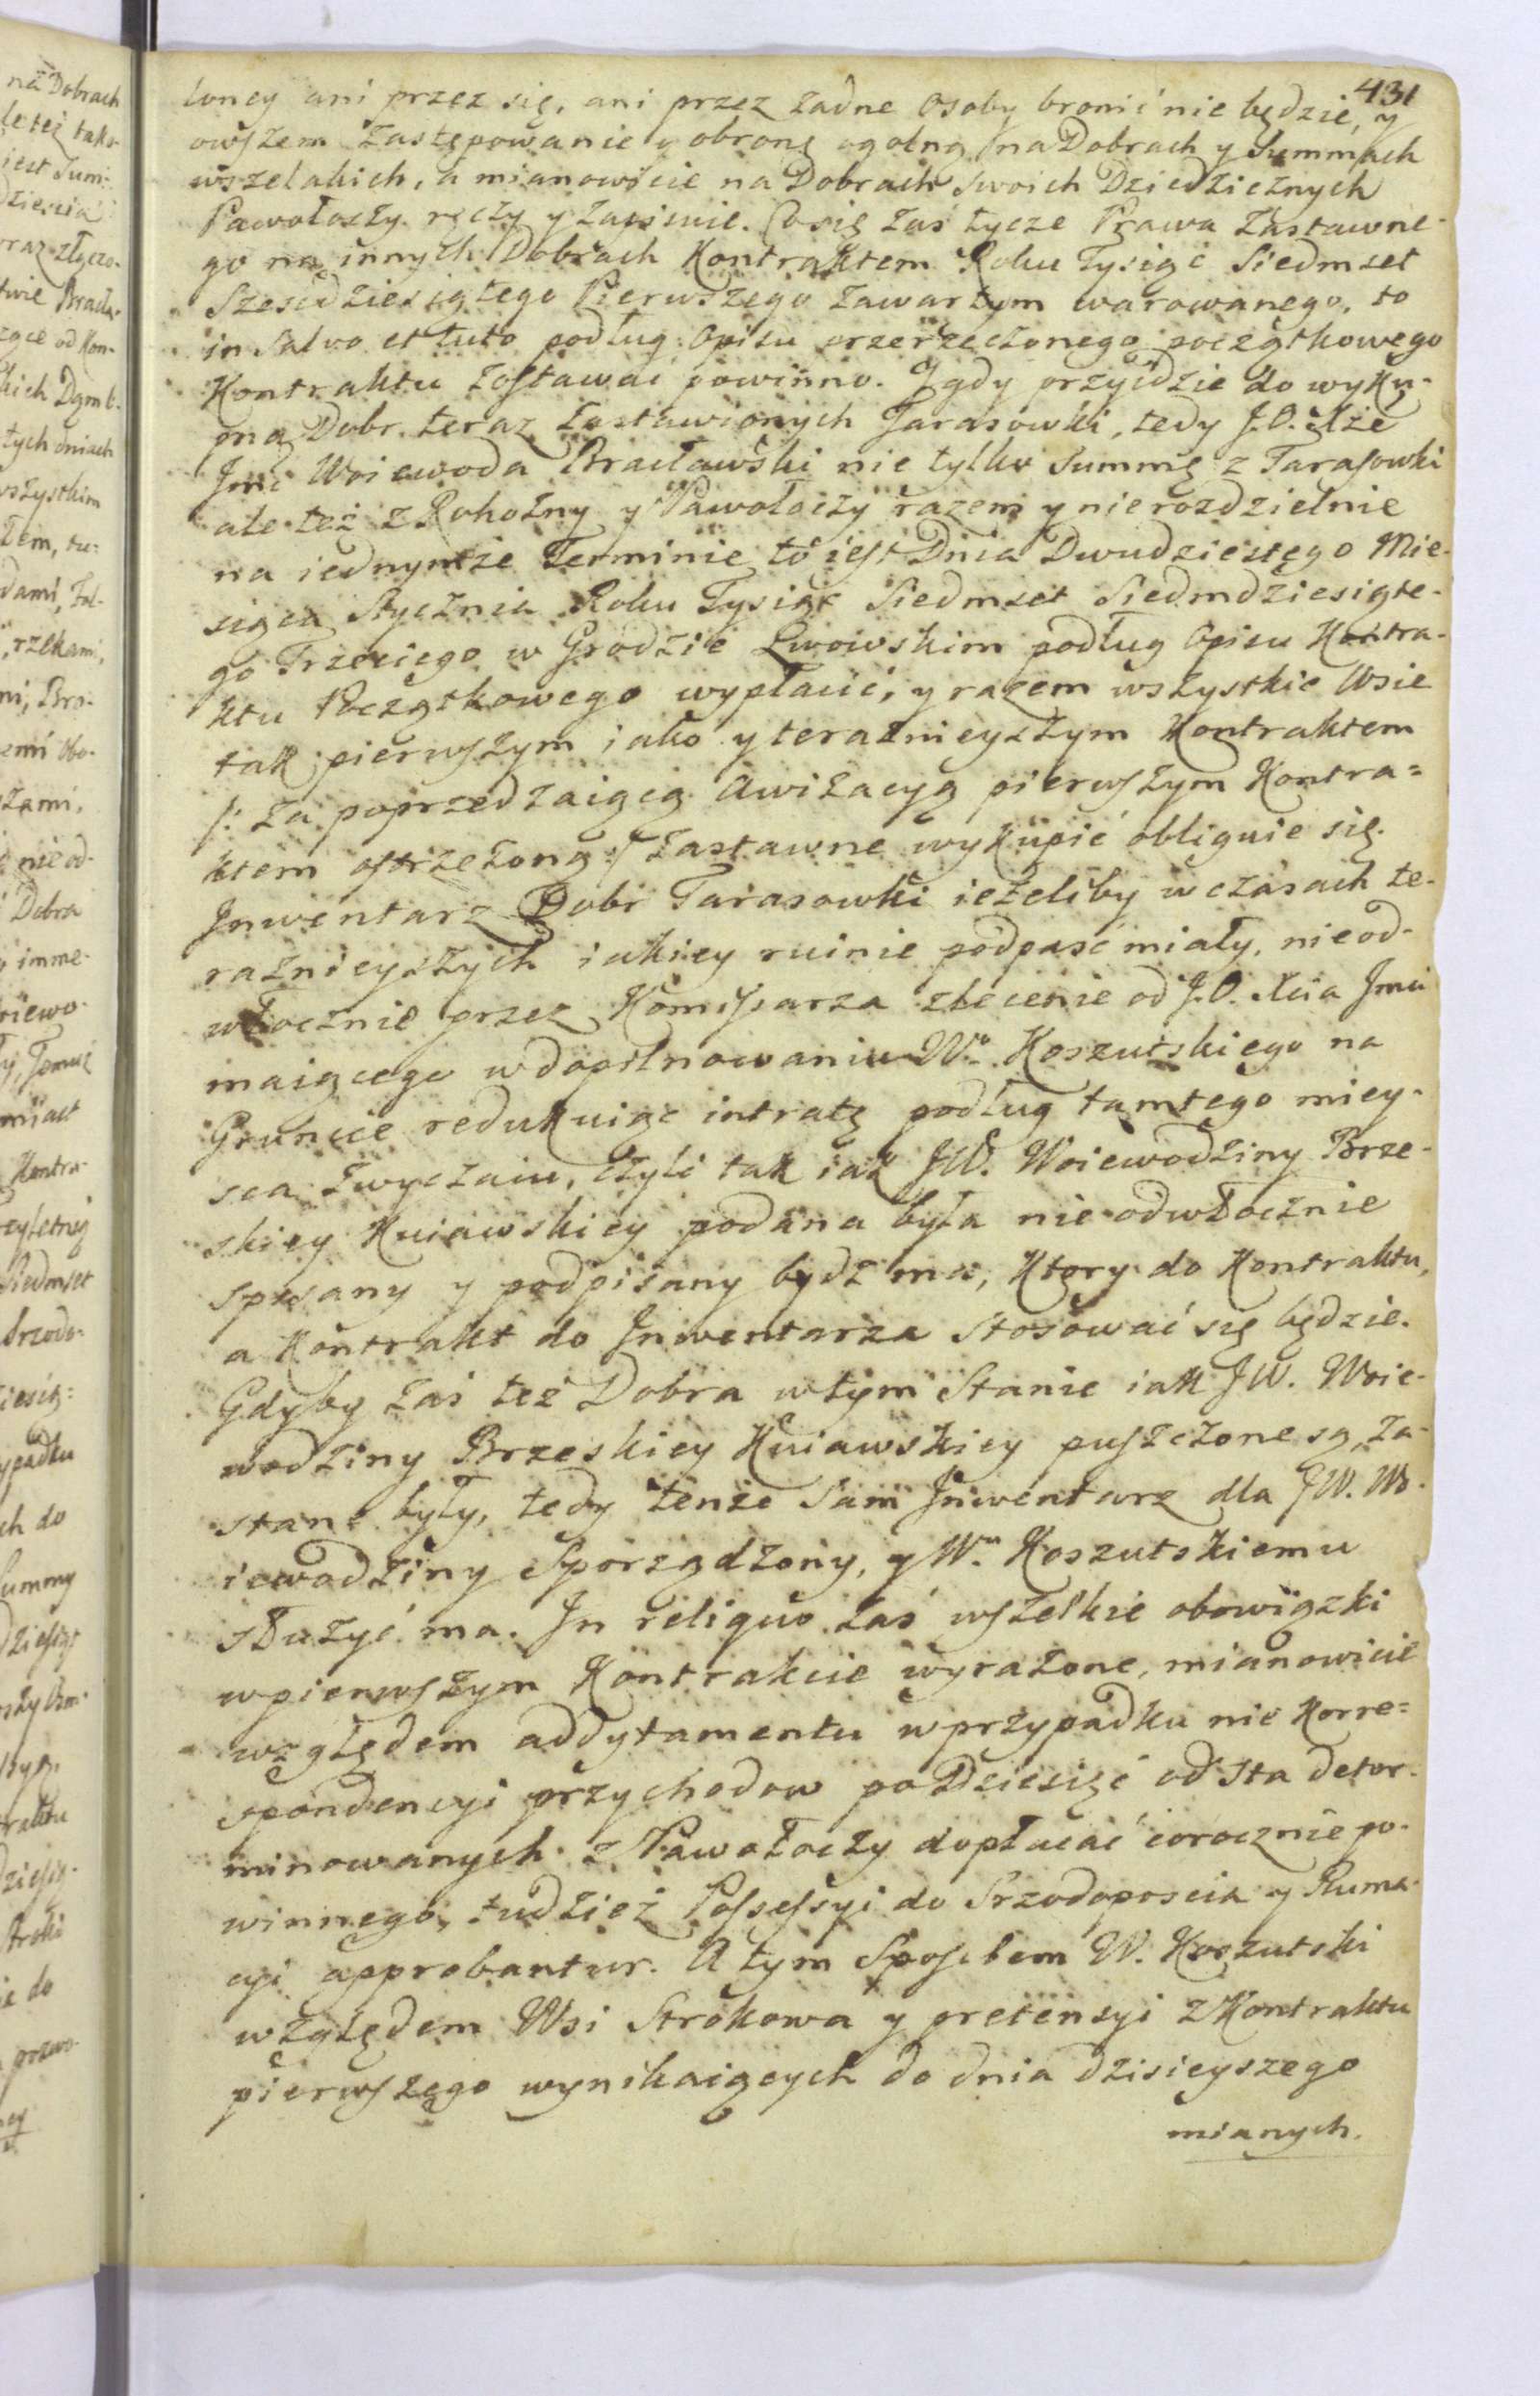 431
loney ani przez się, ani przez żadne Osoby bronić nie będzie, y
owszem Zastępowanie y obronę ogolną na Dobrach y Summach
wszelakich, a mianowicie na Dobrach swoich Dziedzicznych
Pawołoczy ręczy y zapisuie. Co się zaś tycze Prawa Zastawne-
go na innych Dobrach Kontraktem Roku Tysiąc Siedmset
Sześćdziesiątego Pierwszego zawartym warowanego, to
in Salvo et tuto podług Opisu przerzeczonego początkowego
Kontraktu zostawać powinno. Y gdy przyidzie do wyku-
pna Dobr teraz zastawionych Tarasowki, tedy J.O. Xże
Jmć Woiewoda Bracławski nie tylko Summę z Tarasowki
ale też z Rohozny y Pawołoczy razem y nierozdzielnie
na iednymże Terminie to iest Dnia Dwudziestego Mie-
siąca Stycznia Roku Tysiąc Siedmset Siedmdziesiąte-
go Trzeciego w Grodzie Lwowskim podług Opisu Kontra-
ktu Początkowego wypłacić, y razem wszystkie Wsie
tak pierwszym iako y teraznieyszym Kontraktem
/: za poprzedzaiącą Awizacyą pierwszym Kontra=
ktem ostrzeżoną :/ zastawne wykupić obliguie się.
Jnwentarz Dobr Tarasowki ieżeliby w czasach te-
raznieyszych iakiey ruinie podpaść miały, nieod-
włocznie przez Kommissarza zlecenie od J.O. Xcia Jmci
maiącego w dopilnowaniu Wo Koszutskiego na
Gruncie redukuiąc intratę podług tamtego miey-
sca zwyczaiu, czyli tak iak JW. Woiewodziny Brze-
skiey Kuiawskiey podana była nieodwłocznie
spisany y podpisany bydź ma, Ktory do Kontraktu,
a Kontrakt do Jnwentarza stosować się będzie.
Gdyby zaś też Dobra w tym Stanie iak JW. Woie-
wodziny Brzeskiey Kuiawskiey puszczone są, za-
stane były, tedy tenże sam Jnwentarz dla JW. Wo-
iewodziny Sporządzony, y Wu Koszutskiemu
służyć ma. Jn reliquo zaś wszelkie obowiązki
w pierwszym Kontrakcie wyrażone, mianowicie
względem addytamentu w przypadku nie Korre=
spondencyi przychodow po Dziesięć od sta deter-
minowanych z Pawołoczy dopłacać corocznie po-
winnego, tudzież Possessyi do Srzodoposcia y Ruma-
cyi approbantur. A tym Sposobem W. Koszutski
względem Wsi Strokowa y pretensyi z Kontraktu
pierwszego wynikaiących do dnia dzisieyszego
mianych.